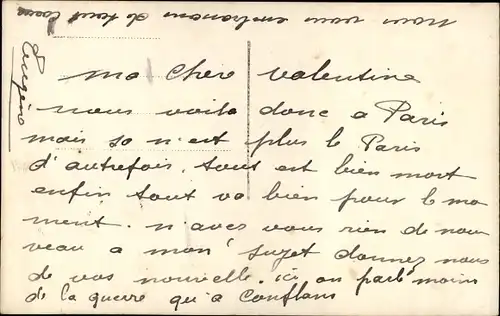 ma chere valentine
nous voila donc a Paris
mais so n'est plus le Paris
d'autrefois. tout est bien mort
enfin tout va bien pour le mo
ment. n avez vous rien de nou
veau a mon sujet donnez nous
de vos nouvelle. ici on parle moins
de la guerre qu'a Conflans
nous vous embrassons de tout coeur
Eugène